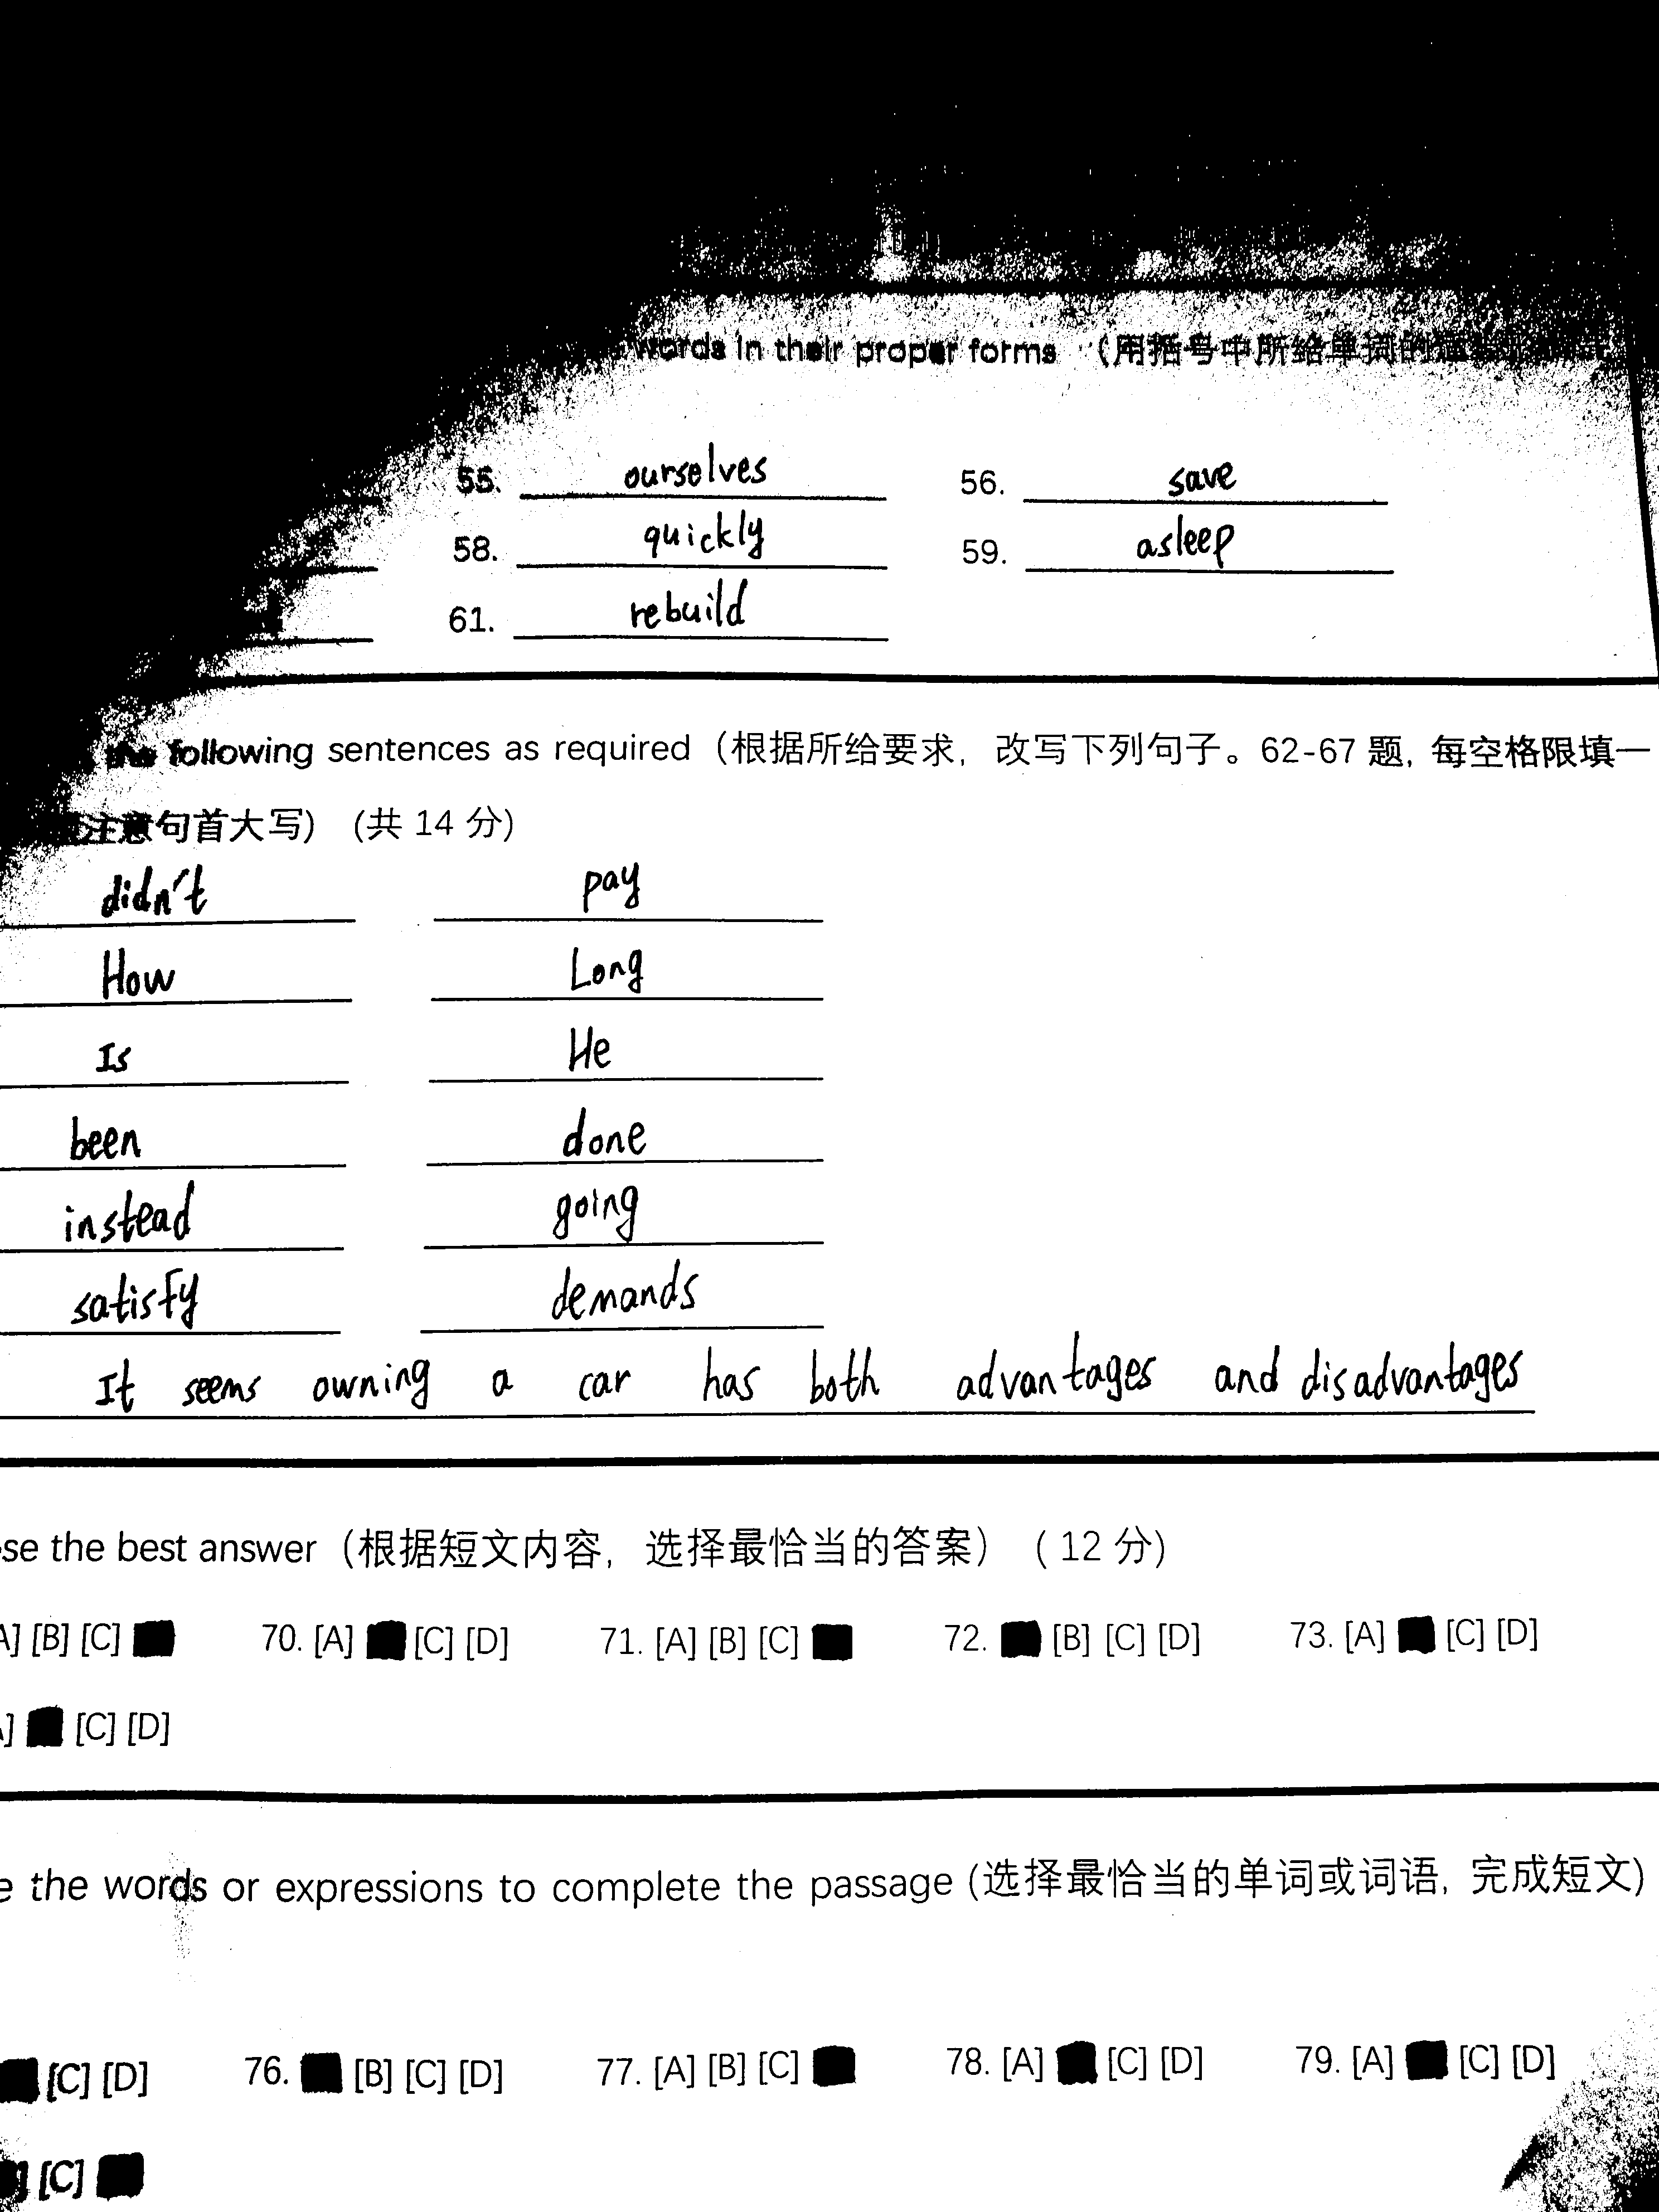 words in their proper forms （用括号中所给单词的
55. ourselves 56. save
58. quickly 59. asleep
61. rebuild
the following sentences as required（根据所给要求，改写下列句子。62-67 题，每空格限填一
注意句首大写） (共 14 分)
didn't pay
How Long
Is He
been done
instead going
satisfy demands
It seems owning a car has both advantages and disadvantages
se the best answer（根据短文内容，选择最恰当的答案）（ 12 分)
A] [B] [C] 70. [A] [C] [D] 71. [A] [B] [C] 72. [B] [C] [D] 73. [A] [C] [D]
] [C] [D]
e the words or expressions to complete the passage (选择最恰当的单词或词语，完成短文)
[C] [D] 76. [B] [C] [D] 77. [A] [B] [C] 78. [A] [C] [D] 79. [A] [C] [D]
] [C]